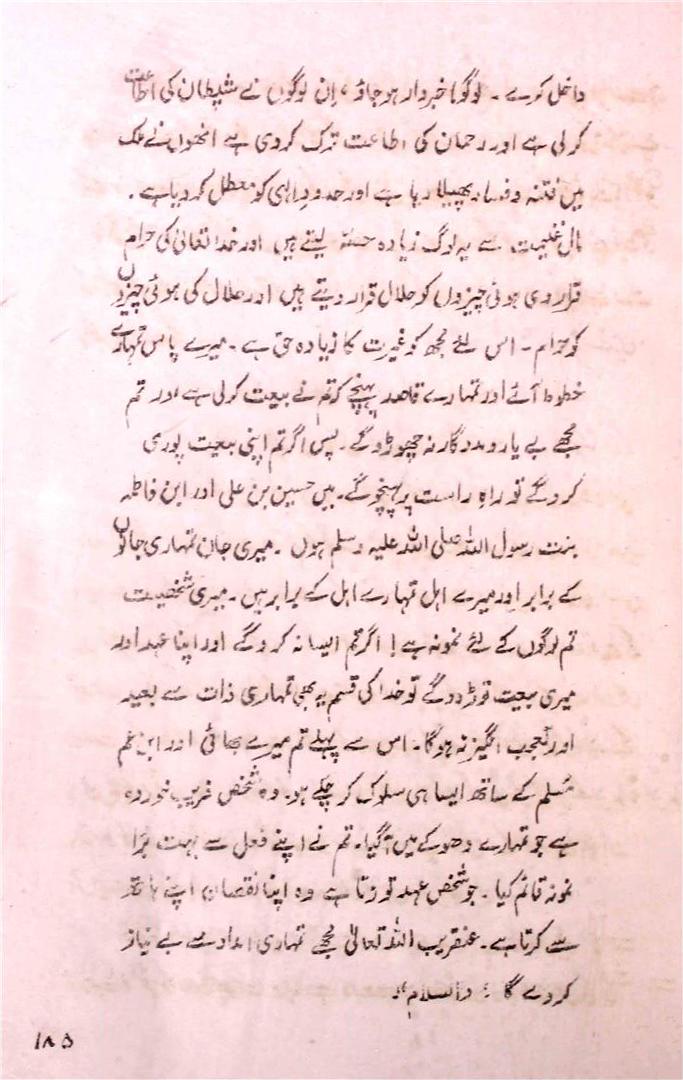 داخل کرے ۔ لوگو! خبردار ہو جاؤ ، اِن لوگوں نے شیطان کی اطاعت
کر لی ہے اور رحمان کی اطاعت ترک کردی ہے انھوں نے ملک
میں فتنہ و فساد پھیلا رہا ہے اور حدودِ الٰہی کو معطل کر دیا ہے ۔
مالِ غنیمت سے یہ لوگ زیادہ حصّہ لیتے ہیں اور خدا تعالیٰ کی حرام
قرار دی ہوئی چیزوں کو حلال قرار دیتے ہیں اور حلال کی ہوئی چیزوں
کو حرام ۔ اس لئے مجھ کو غیرت کا زیادہ حق ہے ۔ میرے پاس تمہارے
خطوط آئے اور تمہارے قاصد پہنچے کہ تم نے بیعت کر لی ہے اور تم
مجھے بے یار و مددگار نہ چھوڑو گے ۔ پس اگر تم اپنی بیعت پوری
کرو گے تو راہِ راست پر پہنچو گے ۔ میں حسین بن علی اور ابن فاطمہ
بنت رسول اللہ صلی اللہ علیہ وسلم ہوں ۔ میری جان تمہاری جانوں
کے برابر اور میرے اہل تمہارے اہل کے برابر ہیں ۔ میری شخصیت
تم لوگوں کے لئے نمونہ ہے ! اگر تم ایسا نہ کرو گے اور اپنا عہد اور
میری بیعت توڑ دو گے تو خدا کی قسم یہ بھی تمہاری ذات سے بعید
اور تعجب انگیز نہ ہوگا ۔ اس سے پہلے تم میرے بھائی اور ابن عم
مُسلم کے ساتھ ایسا ہی سلوک کر چکے ہو ۔ وہ شخص فریب خوردہ
ہے جو تمہارے دھوکے میں آگیا ۔ تم نے اپنے فعل سے بہت بُرا
نمونہ قائم کیا ۔ جو شخص عہد توڑتا ہے وہ اپنا نقصان اپنے ہاتھ
سے کرتا ہے ۔ عنقریب اللہ تعالیٰ مجھے تمہاری امداد سے بے نیاز
کر دے گا ؛ والسلام "
۱۸۵